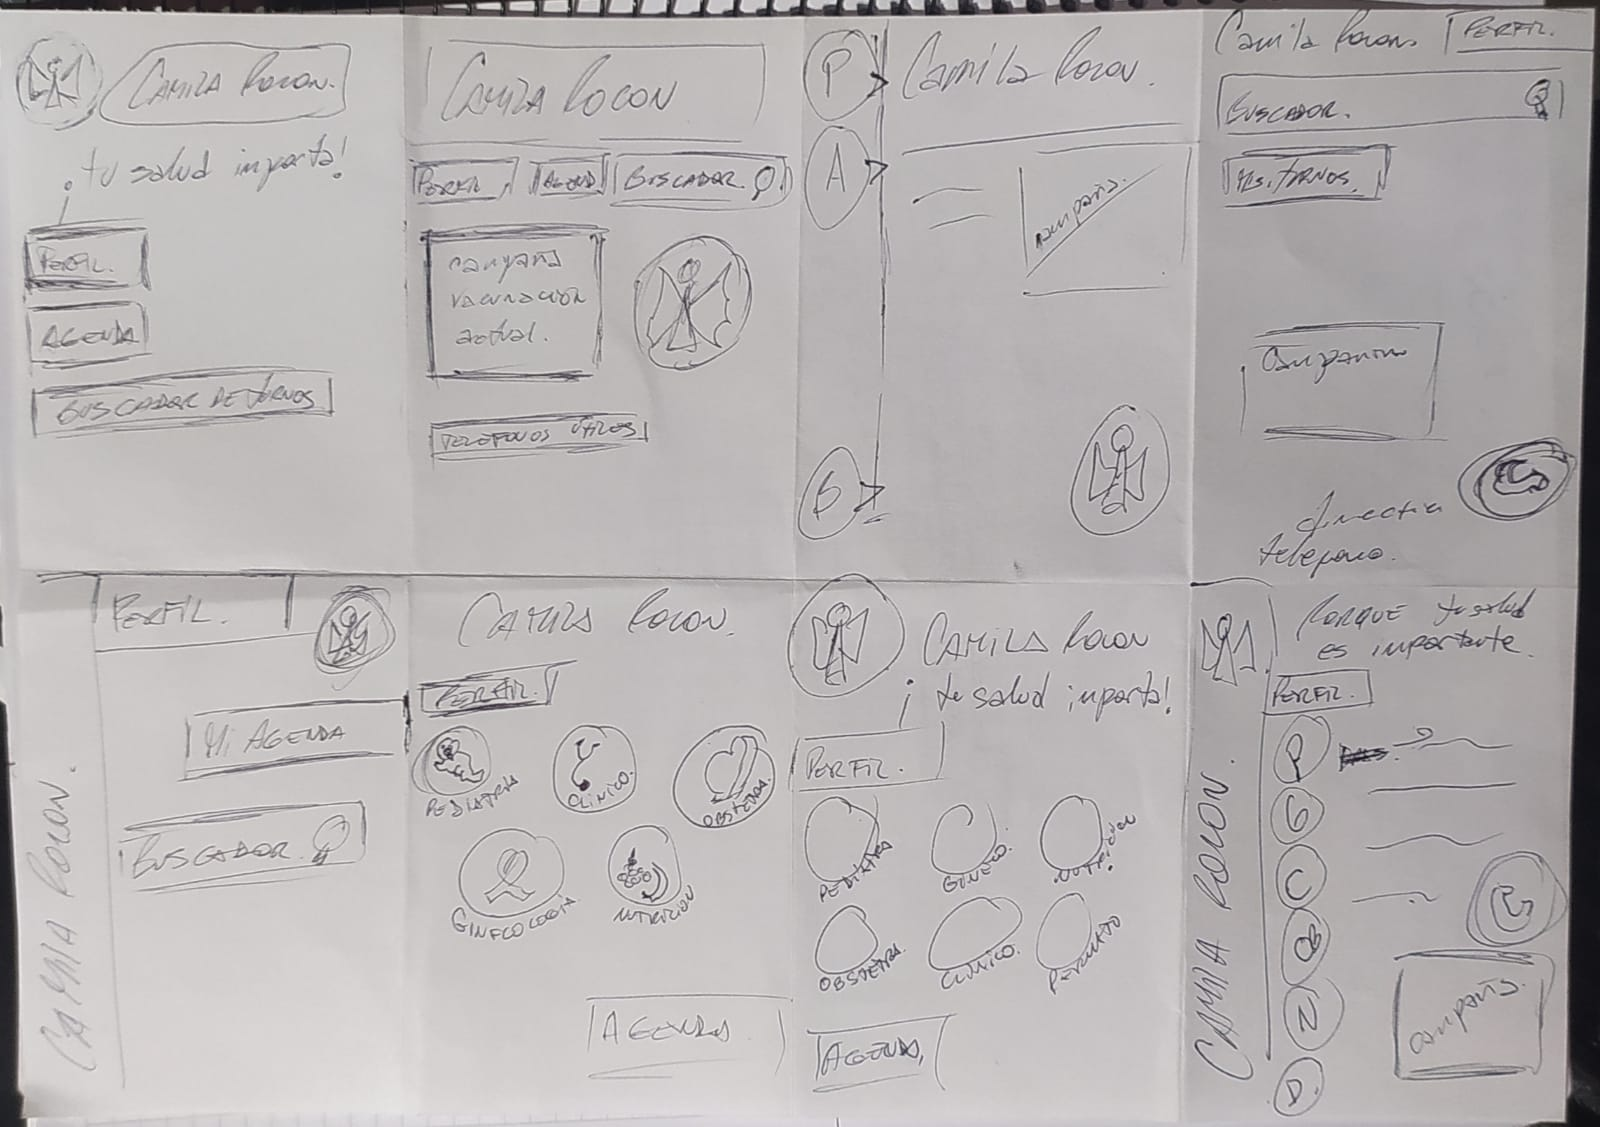 CAMILA ROCON.
¡tu salud importa!
PERFIL.
AGENDA
BUSCADOR DE TURNOS
CAMILA ROCON
PERFIL
AGEND
BUSCADOR.
campaña
vacunación
actual.
TELEFONOS UTILES
P
A
G
Camila Rocon.
campaña.
Camila Rocon.
PERFIL.
BUSCADOR.
MIS. TURNOS.
telefono.
PERFIL.
CAMILA ROCON.
MI AGENDA
BUSCADOR.
CAMILA ROCON.
PERFIL.
PEDIATRIA
CLINICO.
OBSTETRA.
GINECOLOGIA
NUTRICION
AGENDA
CAMILA ROCON
¡tu salud importa!
PERFIL.
PEDIATRA
GINECO.
NUTRICION
OBSTETRA.
CLINICO.
AGENDA,
PORQUE tu salud
es importante.
PERFIL.
CAMILA ROCON.
P
G
C
OB
N
D.
campaña.